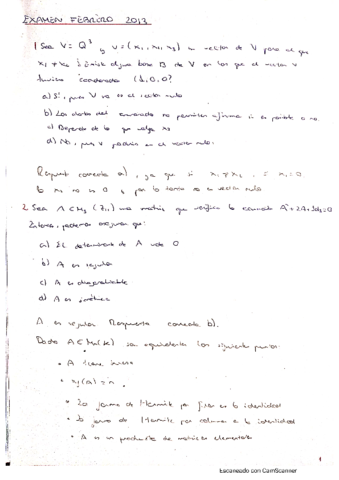 EXAMEN FEBRERO 2013
1. Sea V = Q³ y v = (x₁, x₂, x₃) un vector de V para el que
x₁ ≠ x₂ ¿Existe alguna base B de V en la que el vector v
tuviera coordenadas (1,0,0)?
a) Sí, pues V no es el vector nulo
b) Los datos del enunciado no permiten afirmar si es posible o no.
c) Depende de lo que valga x₃
d) No, pues v podría ser el vector nulo.
Respuesta correcta a), ya que si x₁ ≠ x₂, si x₁ = 0
x₂ no es 0 y por lo tanto no es vector nulo
2. Sea A ∈ M₃ (Z₁₁) una matriz que verifica la ecuación
Entonces, podemos asegurar que:
a) El determinante de A vale 0
b) A es regular
c) A es diagonalizable
d) A es simétrica
A es regular. Respuesta correcta b).
Dada A ∈ Mn(K) son equivalentes los siguientes puntos:
• A tiene inversa
• rg(A) = n
• La forma de Hermite por filas es la identidad
• La forma de Hermite por columnas es la identidad
• A es un producto de matrices elementales
1
Escaneado con CamScanner